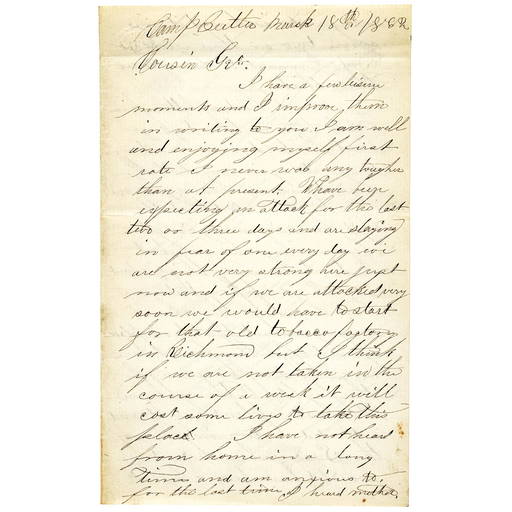 Camp Butler March 18th 1862
Cousin Geo.
I have a few leisure
moments and I improve them
in writing to you I am well
and enjoying myself first
rate I never was any tougher
than at present. I have been
expecting an attack for the last
two or three days and are staying
in fear of one every day we
are not very strong here just
now and if we are attacked very
soon we would have to start
for that old tobacco factory
in Richmond but I think
if we are not taken in the
course of a week it will
cost some lives to take this
place I have not heard
from home in a long
time and am anxious to.
for the last time I heard mother